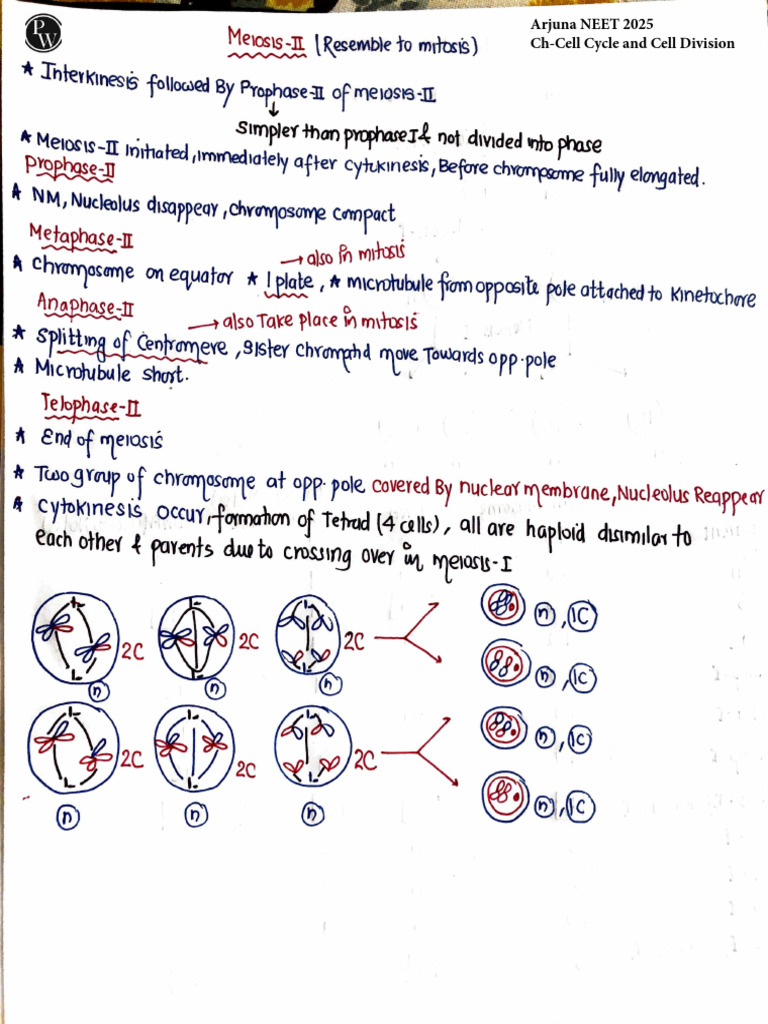 PW
Arjuna NEET 2025
Ch-Cell Cycle and Cell Division
Meiosis-II (Resemble to mitosis)
* Interkinesis followed By Prophase-II of meiosis-II
↓
simpler than prophase I & not divided into phase
* Meiosis-II initiated, immediately after cytokinesis, Before chromosome fully elongated.
Prophase-II
* NM, Nucleolus disappear, chromosome compact
Metaphase-II
→ also in mitosis
* Chromosome on equator * 1 plate, * microtubule from opposite pole attached to Kinetochore
Anaphase-II
→ also Take place in mitosis
* Splitting of Centromere, sister chromatid move Towards opp. pole
* Microtubule short.
Telophase-II
* End of meiosis
* Two group of chromosome at opp. pole covered By nuclear membrane, Nucleolus Reappear
* Cytokinesis occur, formation of Tetrad (4 cells), all are haploid disimilar to
each other & parents due to crossing over in meiosis-I
2C 2C 2C n, 1C
n n n n, 1C
2C 2C 2C n, 1C
n n n n, 1C